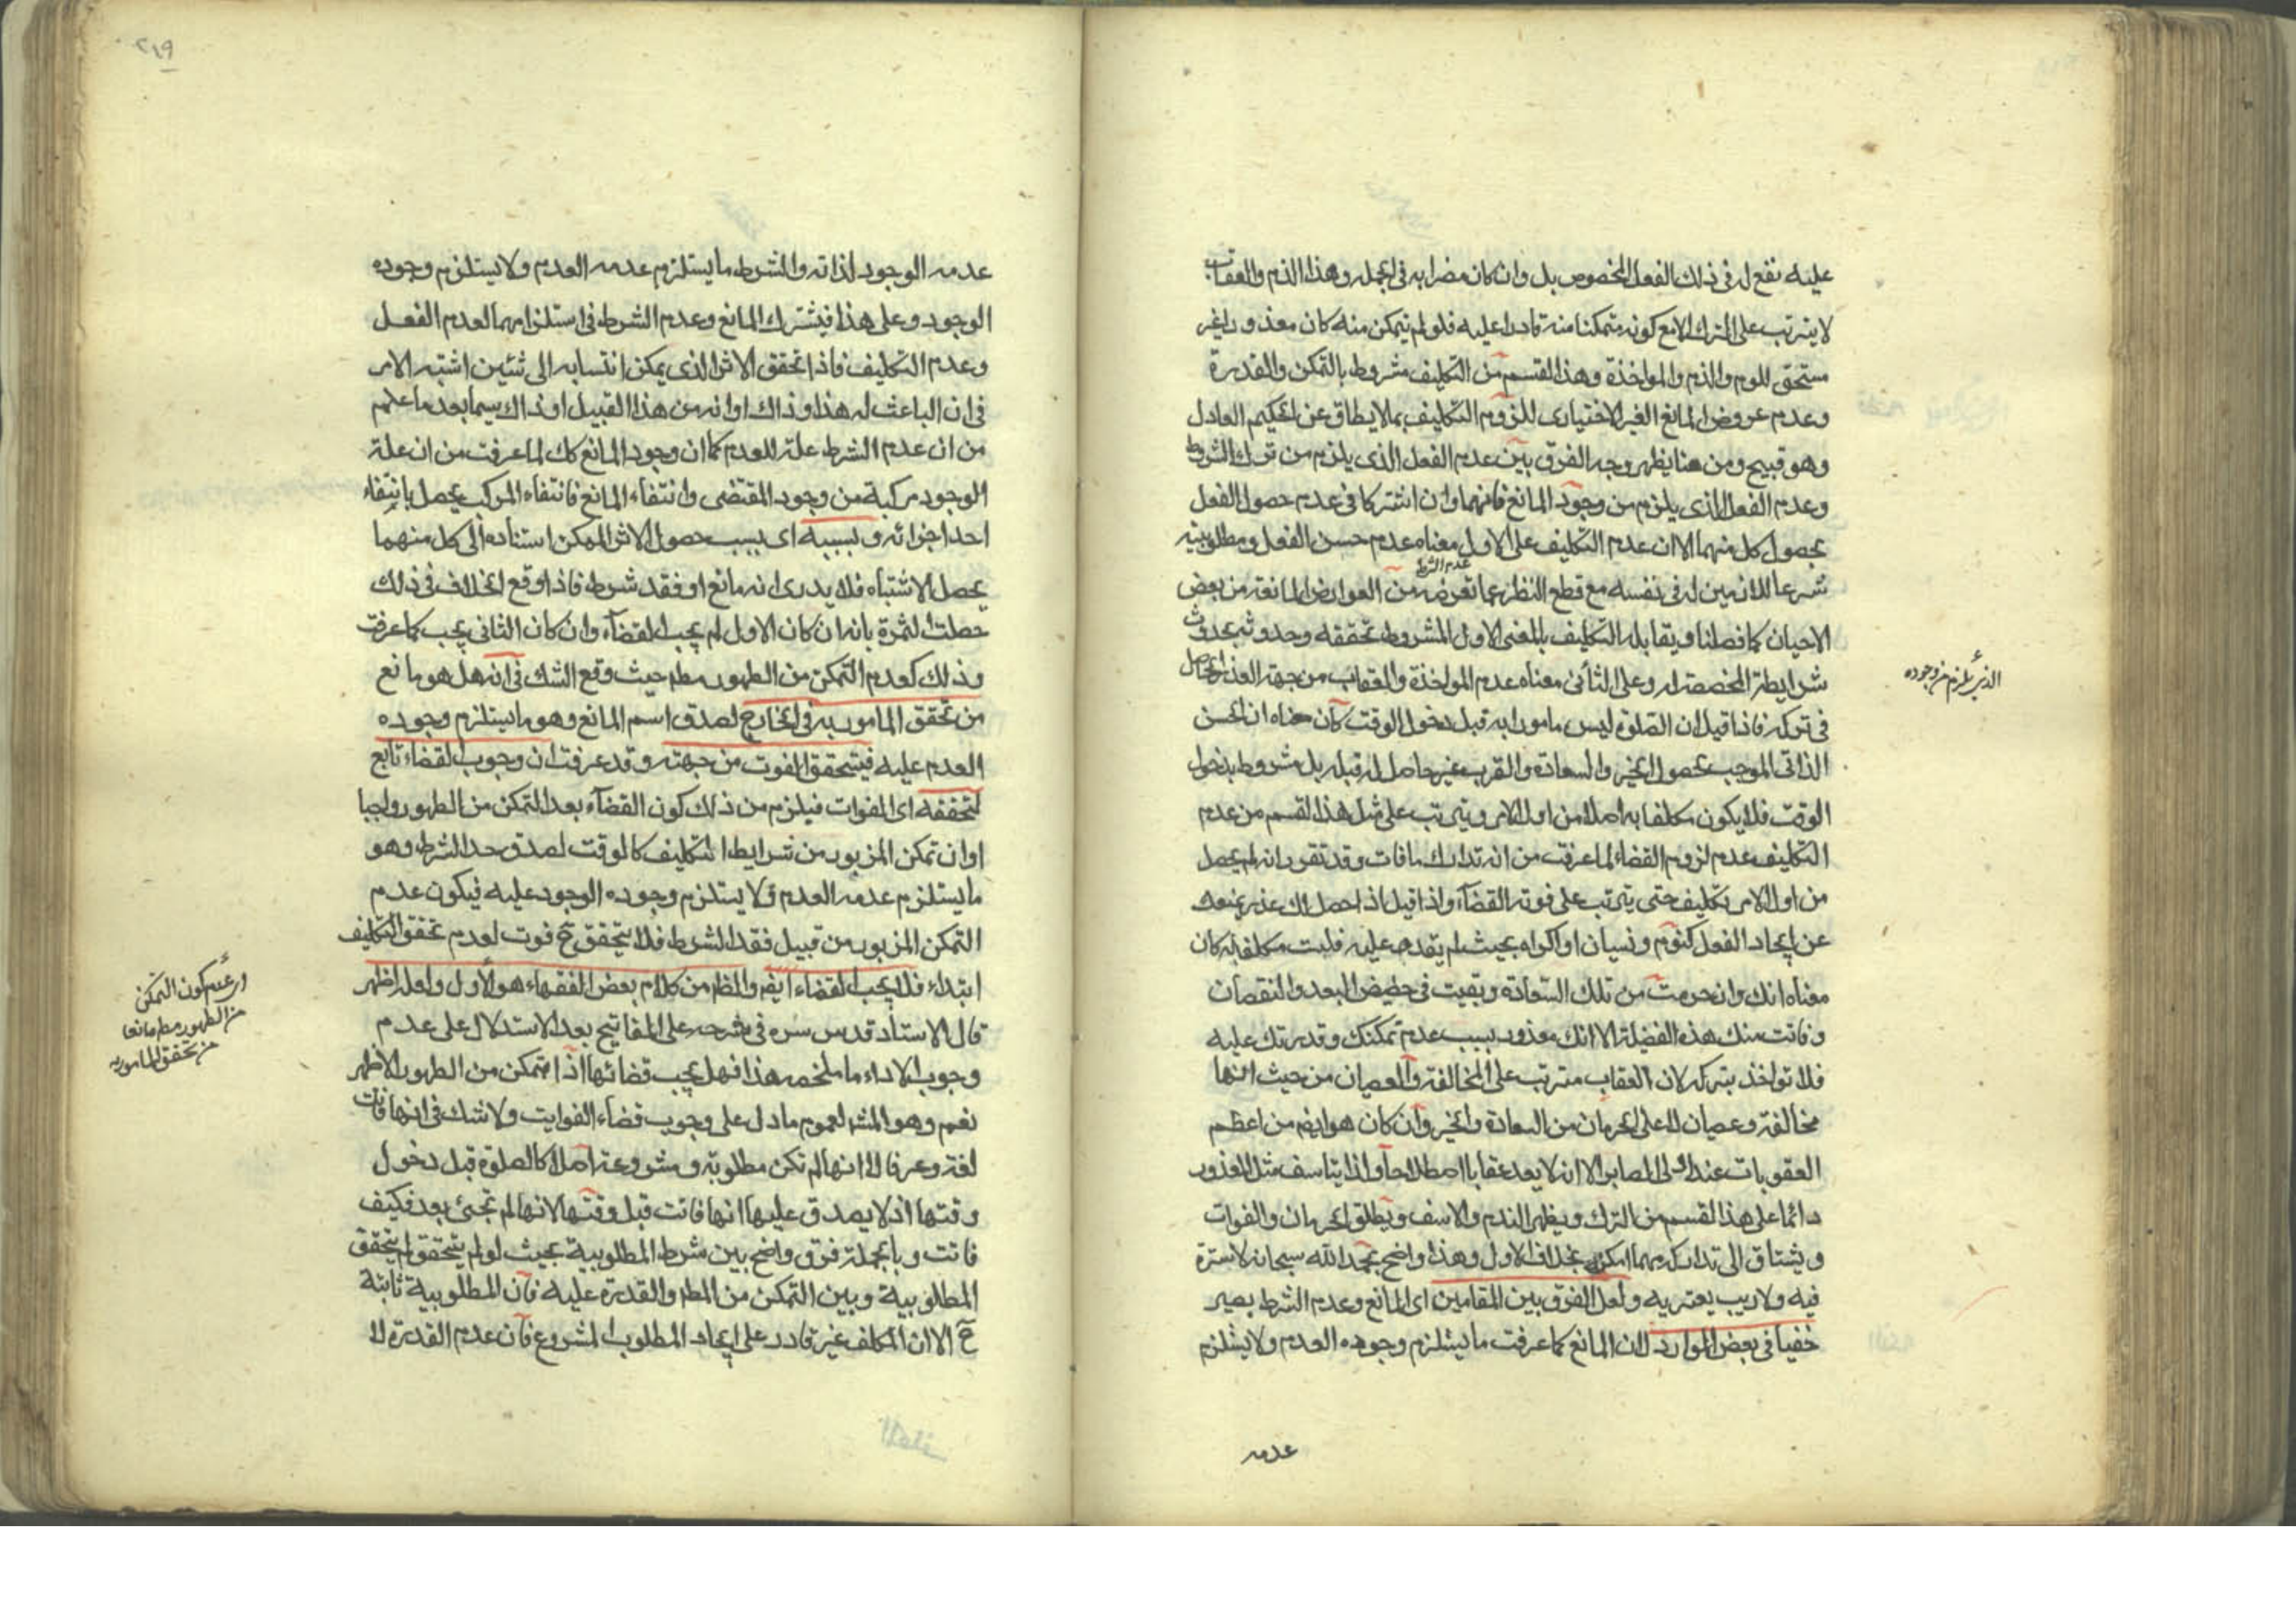 عليه نفع له في ذلك الفعل المخصوص بل وان كان مضرا به في الجمله وهذا الذم والعقاب
لا يترتب على الترك الا مع كونه متمكنا منه قادرا عليه فلو لم يتمكن منه كان معذورا غير
مستحق للوم والذم والمواخذة وهذا القسم من التكليف مشروط بالتمكن والقدرة
وعدم عروض المانع الغير الاختياري للزوم التكليف بما لا يطاق عن الحكيم العادل
وهو قبيح ومن هنا يظهر وجه الفرق بين عدم الفعل الذي يلزم من ترك الشرط
وعدم الفعل الذي يلزم من وجود المانع فانهما وان اشتركا في عدم حصول الفعل
بحصول كل منهما الا ان عدم التكليف على الاول معناه عدم حسن الفعل ومطلوبيته
عدم الشرط
شرعا للانسان له في نفسه مع قطع النظر عما تعرضه من العوارض المانعة من بعض
الاحيان كما فصلنا ويقابله التكليف بالمعنى الاول المشروط تحققه وحدوثه بحدوث
شرايطه المخصصة له وعلى الثاني معناه عدم المواخذة والعقاب من جهة العذر الحاصل
الذي يلزم من وجوده
في تركه فاذا قيل ان الصلوة ليس مامورا به قبل دخول الوقت كان معناه ان الحسن
الذاتي الموجب لحصول الخير والسعادة والقرب غير حاصل له قبله بل مشروط بدخول
الوقت فلا يكون مكلفا به اصلا من اول الامر ويترتب على مثل هذا القسم من عدم
التكليف عدم لزوم القضاء لما عرفت من انه تدارك ما فات وقد تقرر انه لم يحصل
من اول الامر تكليف حتى يترتب على فوته القضآء واذا قيل اذا حصل لك عذر يمنعك
عن ايجاد الفعل كنوم ونسيان او اكراه بحيث لم يقدر عليه فلست مكلفا به كان
معناه انك وان حرمت من تلك السعادة وبقيت في حضيض البعد والنقصان
وفاتت منك هذه الفضيلة الا انك معذور بسبب عدم تمكنك وقدرتك عليه
فلا تواخذ بتركه لان العقاب مترتب على المخالفة والعصيان من حيث انها
مخالفة وعصيان لا على الحرمان من السعادة والخير وان كان هو ايضم من اعظم
العقوبات عند اولى المصابر الا انه لا يعد عقابا اصطلاحا ولذا يتاسف مثل المعذور
دائما على هذا القسم من الترك ويظهر الندم والاسف ويطلق الحرمان والفوات
ويشتاق الى تداركه مهما امكن بخلاف الاول وهذا واضح بحمد الله سبحانه لا سترة
فيه ولا ريب يعتريه ولعل الفرق بين المقامين اي المانع وعدم الشرط يصير
خفيا في بعض الموارد لان المانع كما عرفت ما يستلزم وجوده العدم ولا يستلزم
عدمه
٢١٩
عدمه الوجود لذاته والشرط ما يستلزم عدمه العدم ولا يستلزم وجوده
الوجود وعلى هذا فيشترك المانع وعدم الشرط في استلزامهما لعدم الفعل
وعدم التكليف فاذا تحقق الاثر الذي يمكن انتسابه الى شئين اشتبه الامر
في ان الباعث له هذا وذاك او انه من هذا القبيل او ذاك سيما بعد ما علم
من ان عدم الشرط علة للعدم كما ان وجود المانع كك لما عرفت من ان علة
الوجود مركبة من وجود المقتضى وانتفاء المانع فانتفاء المركب يحصل بانتفاء
احد اجزائه وبسببه اي بسبب حصول الاثر الممكن استناده الى كل منهما
يحصل الاشتباه فلا يدرى انه مانع او فقد شرط فاذا وقع الخلاف في ذلك
حصلت الثمرة بانه ان كان الاول لم يجب القضآء وان كان الثاني يجب كما عرفت
وذلك كعدم التمكن من الطهور مطم حيث وقع الشك في انه هل هو مانع
من تحقق المامور به في الخارج لصدق اسم المانع وهو ما يستلزم وجوده
العدم عليه فيتحقق الفوت من جهته وقد عرفت ان وجوب القضاء تابع
لتحققه اي الفوات فيلزم من ذلك كون القضآء بعد التمكن من الطهور واجبا
او ان تمكن المزبور من شرايط التكليف كالوقت لصدق حد الشرط وهو
ما يستلزم عدمه العدم ولا يستلزم وجوده الوجود عليه فيكون عدم
التمكن المزبور من قبيل فقد الشرط فلا يتحقق ح فوت لعدم تحقق التكليف
ابتداء فلا يجب القضاء ايضم والظم من كلام بعض الفقهاء هو الاول ولعله اظهر
وعدم كون التمكن
من الطهور مطم مانعا
من تحقق المامور به
قال الاستاد قدس سره في شرحه على المفاتيح بعد الاستدلال على عدم
وجوب الاداء ما ملخصه هذا فهل يجب قضائها اذا تمكن من الطهور الاظهر
نعم وهو المشه لعموم ما دل على وجوب قضاء الفوايت ولا شك في انها فاتت
لغة وعرفا لا انها لم تكن مطلوبة ومشروعة اصلا كالصلوة قبل دخول
وقتها اذ لا يصدق عليها انها فاتت قبل وقتها لانها لم تجئ بعد فكيف
فاتت وبالجملة فرق واضح بين شرط المطلوبية بحيث لو لم يتحقق لم يتحقق
المطلوبية وبين التمكن من المطم والقدرة عليه فان المطلوبية ثابتة
ح الا ان المكلف غير قادر على ايجاد المطلوب المشروع فان عدم القدرة لا